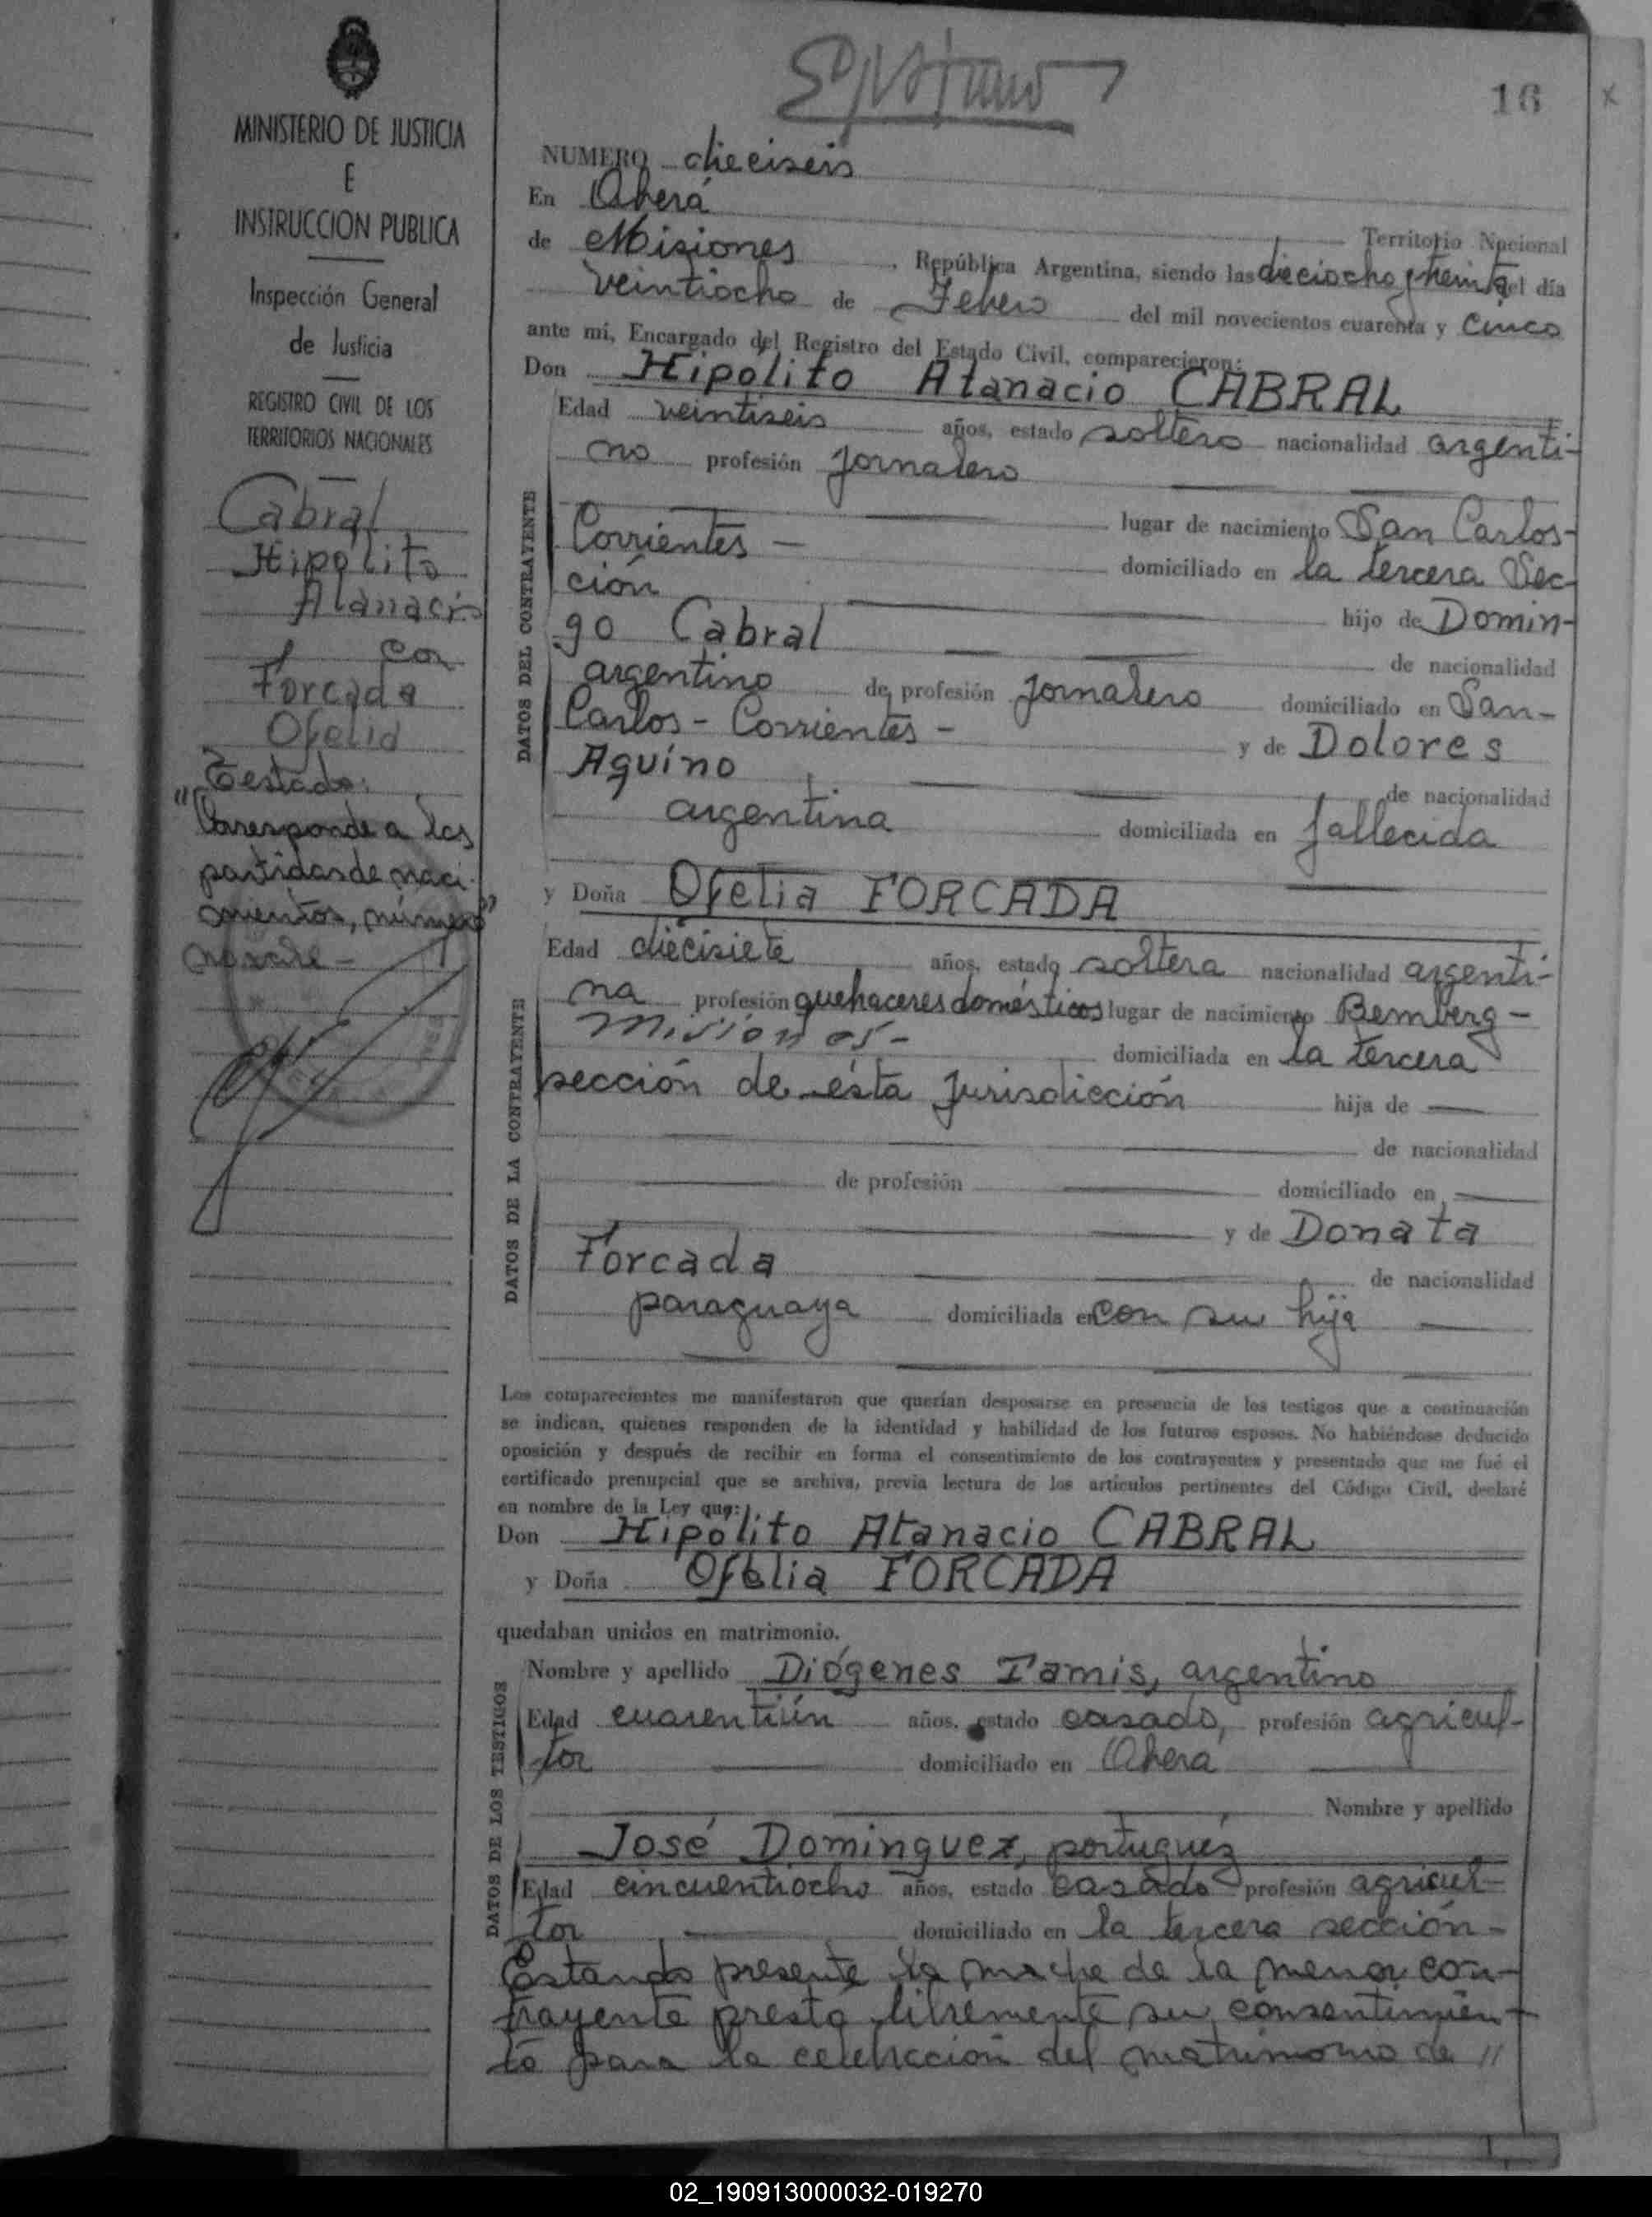 16
x
MINISTERIO DE JUSTICIA
E
INSTRUCCION PUBLICA
Inspección General
de Justicia
REGISTRO CIVIL DE LOS
TERRITORIOS NACIONALES
Cabral
Hipólito
Atanacio
con
Forcada
Ofelia
Testado:
"Corresponde a las
partidas de naci-
mientos, número"
no vale -
NUMERO dieciseis
En Oberá
Territorio Nacional
de Misiones, República Argentina, siendo las dieciocho y treinta del día
veintiocho de Febero del mil novecientos cuarenta y cinco
ante mí, Encargado del Registro del Estado Civil, comparecieron:
Don Hipólito Atanacio CABRAL
DATOS DEL CONTRAYENTE
Edad veintiseis años, estado soltero nacionalidad argenti-
no profesión jornalero
lugar de nacimiento San Carlos-
Corrientes -
domiciliado en la tercera Sec-
ción
hijo de Domin-
go Cabral
de nacionalidad
argentino de profesión jornalero domiciliado en San-
Carlos - Corrientes - y de Dolores
Aquino
de nacionalidad
argentina domiciliada en fallecida
y Doña Ofelia FORCADA
DATOS DE LA CONTRAYENTE
Edad diecisiete años, estado soltera nacionalidad argenti-
na profesión quehaceres domésticos lugar de nacimiento Bemberg -
Misiones - domiciliada en la tercera
sección de ésta jurisdicción hija de
de nacionalidad
de profesión domiciliado en
y de Donata
Forcada
de nacionalidad
paraguaya domiciliada en con su hija
Los comparecientes me manifestaron que querían desposarse en presencia de los testigos que a continuación
se indican, quienes responden de la identidad y habilidad de los futuros esposos. No habiéndose deducido
oposición y después de recibir en forma el consentimiento de los contrayentes y presentado que me fué el
certificado prenupcial que se archiva, previa lectura de los artículos pertinentes del Código Civil, declaré
en nombre de la Ley que:
Don Hipólito Atanacio CABRAL
y Doña Ofelia FORCADA
quedaban unidos en matrimonio.
DATOS DE LOS TESTIGOS
Nombre y apellido Diógenes Tamis, argentino
Edad cuarentiún años, estado casado, profesión agricul-
tor domiciliado en Oberá
Nombre y apellido
José Dominguez, portuguéz
Edad cincuentiocho años, estado casado profesión agricul-
tor domiciliado en la tercera sección-
Estando presente la madre de la menor con-
trayente presta libremente su consentimien-
to para la celebración del matrimonio de //
02_190913000032-019270